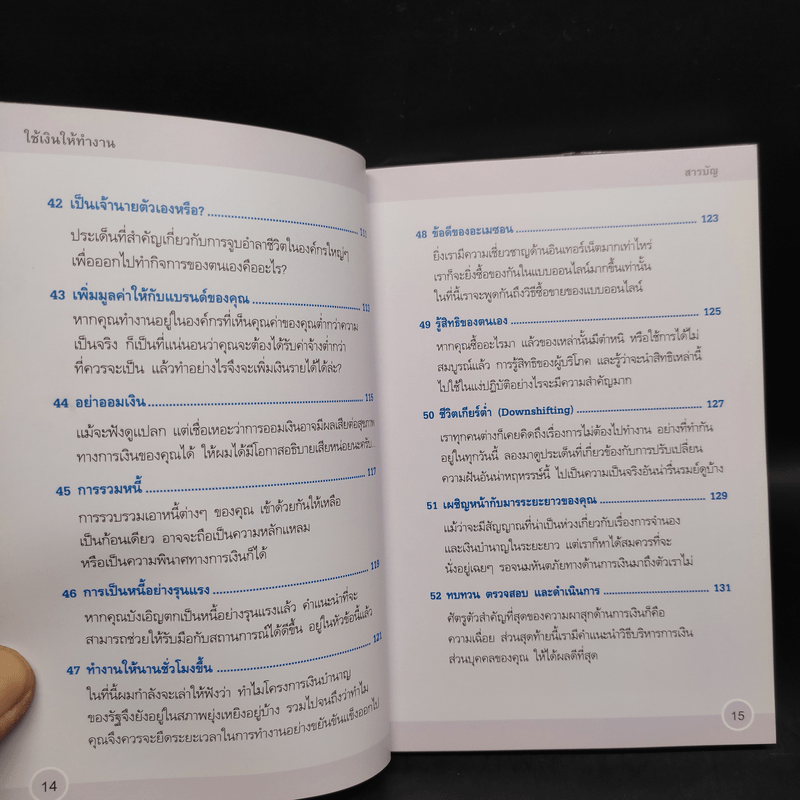 ใช้เงินให้ทำงาน
42 เป็นเจ้านายตัวเองหรือ? 111
ประเด็นที่สำคัญเกี่ยวกับการจูบอำลาชีวิตในองค์กรใหญ่ๆ
เพื่อออกไปทำกิจการของตนเองคืออะไร?
43 เพิ่มมูลค่าให้กับแบรนด์ของคุณ 113
หากคุณทำงานอยู่ในองค์กรที่เห็นคุณค่าของคุณต่ำกว่าความ
เป็นจริง ก็เป็นที่แน่นอนว่าคุณจะต้องได้รับค่าจ้างต่ำกว่า
ที่ควรจะเป็น แล้วทำอย่างไรจึงจะเพิ่มเงินรายได้ได้ล่ะ?
44 อย่าออมเงิน 116
แม้จะฟังดูแปลก แต่เชื่อเหอะว่าการออมเงินอาจมีผลเสียต่อสุขภาพ
ทางการเงินของคุณได้ ให้ผมได้มีโอกาสอธิบายเสียหน่อยนะครับ...
45 การรวมหนี้ 117
การรวบรวมเอาหนี้ต่างๆ ของคุณ เข้าด้วยกันให้เหลือ
เป็นก้อนเดียว อาจจะถือเป็นความหลักแหลม
หรือเป็นความพินาศทางการเงินก็ได้
46 การเป็นหนี้อย่างรุนแรง 119
หากคุณบังเอิญตกเป็นหนี้อย่างรุนแรงแล้ว คำแนะนำที่จะ
สามารถช่วยให้รับมือกับสถานการณ์ได้ดีขึ้น อยู่ในหัวข้อนี้แล้ว
47 ทำงานให้นานชั่วโมงขึ้น 121
ในที่นี้ผมกำลังจะเล่าให้ฟังว่า ทำไมโครงการเงินบำนาญ
ของรัฐจึงยังอยู่ในสภาพยุ่งเหยิงอยู่บ้าง รวมไปจนถึงว่าทำไม
คุณจึงควรจะยืดระยะเวลาในการทำงานอย่างขยันขันแข็งออกไป
14
สารบัญ
48 ข้อดีของอะเมซอน 123
ยิ่งเรามีความเชี่ยวชาญด้านอินเทอร์เน็ตมากเท่าไหร่
เราก็จะยิ่งซื้อของกันในแบบออนไลน์มากขึ้นเท่านั้น
ในที่นี้เราจะพูดกันถึงวิธีซื้อขายของแบบออนไลน์
49 รู้สิทธิของตนเอง 125
หากคุณซื้ออะไรมา แล้วของเหล่านั้นมีตำหนิ หรือใช้การได้ไม่
สมบูรณ์แล้ว การรู้สิทธิของผู้บริโภค และรู้ว่าจะนำสิทธิเหล่านี้
ไปใช้ในแง่ปฏิบัติอย่างไรจะมีความสำคัญมาก
50 ชีวิตเกียร์ต่ำ (Downshifting) 127
เราทุกคนต่างก็เคยคิดถึงเรื่องการไม่ต้องไปทำงาน อย่างที่ทำกัน
อยู่ในทุกวันนี้ ลองมาดูประเด็นที่เกี่ยวข้องกับการปรับเปลี่ยน
ความฝันอันน่าหฤหรรษ์นี้ ไปเป็นความเป็นจริงอันน่ารื่นรมย์ดูบ้าง
51 เผชิญหน้ากับมารระยะยาวของคุณ 129
แม้ว่าจะมีสัญญาณที่น่าเป็นห่วงเกี่ยวกับเรื่องการจำนอง
และเงินบำนาญในระยะยาว แต่เราก็หาได้สมควรที่จะ
นั่งอยู่เฉยๆ รอจนมหันตภัยทางด้านการเงินมาถึงตัวเราไม่
52 ทบทวน ตรวจสอบ และดำเนินการ 131
ศัตรูตัวสำคัญที่สุดของความผาสุกด้านการเงินก็คือ
ความเฉื่อย ส่วนสุดท้ายนี้เรามีคำแนะนำวิธีบริหารการเงิน
ส่วนบุคคลของคุณ ให้ได้ผลดีที่สุด
15